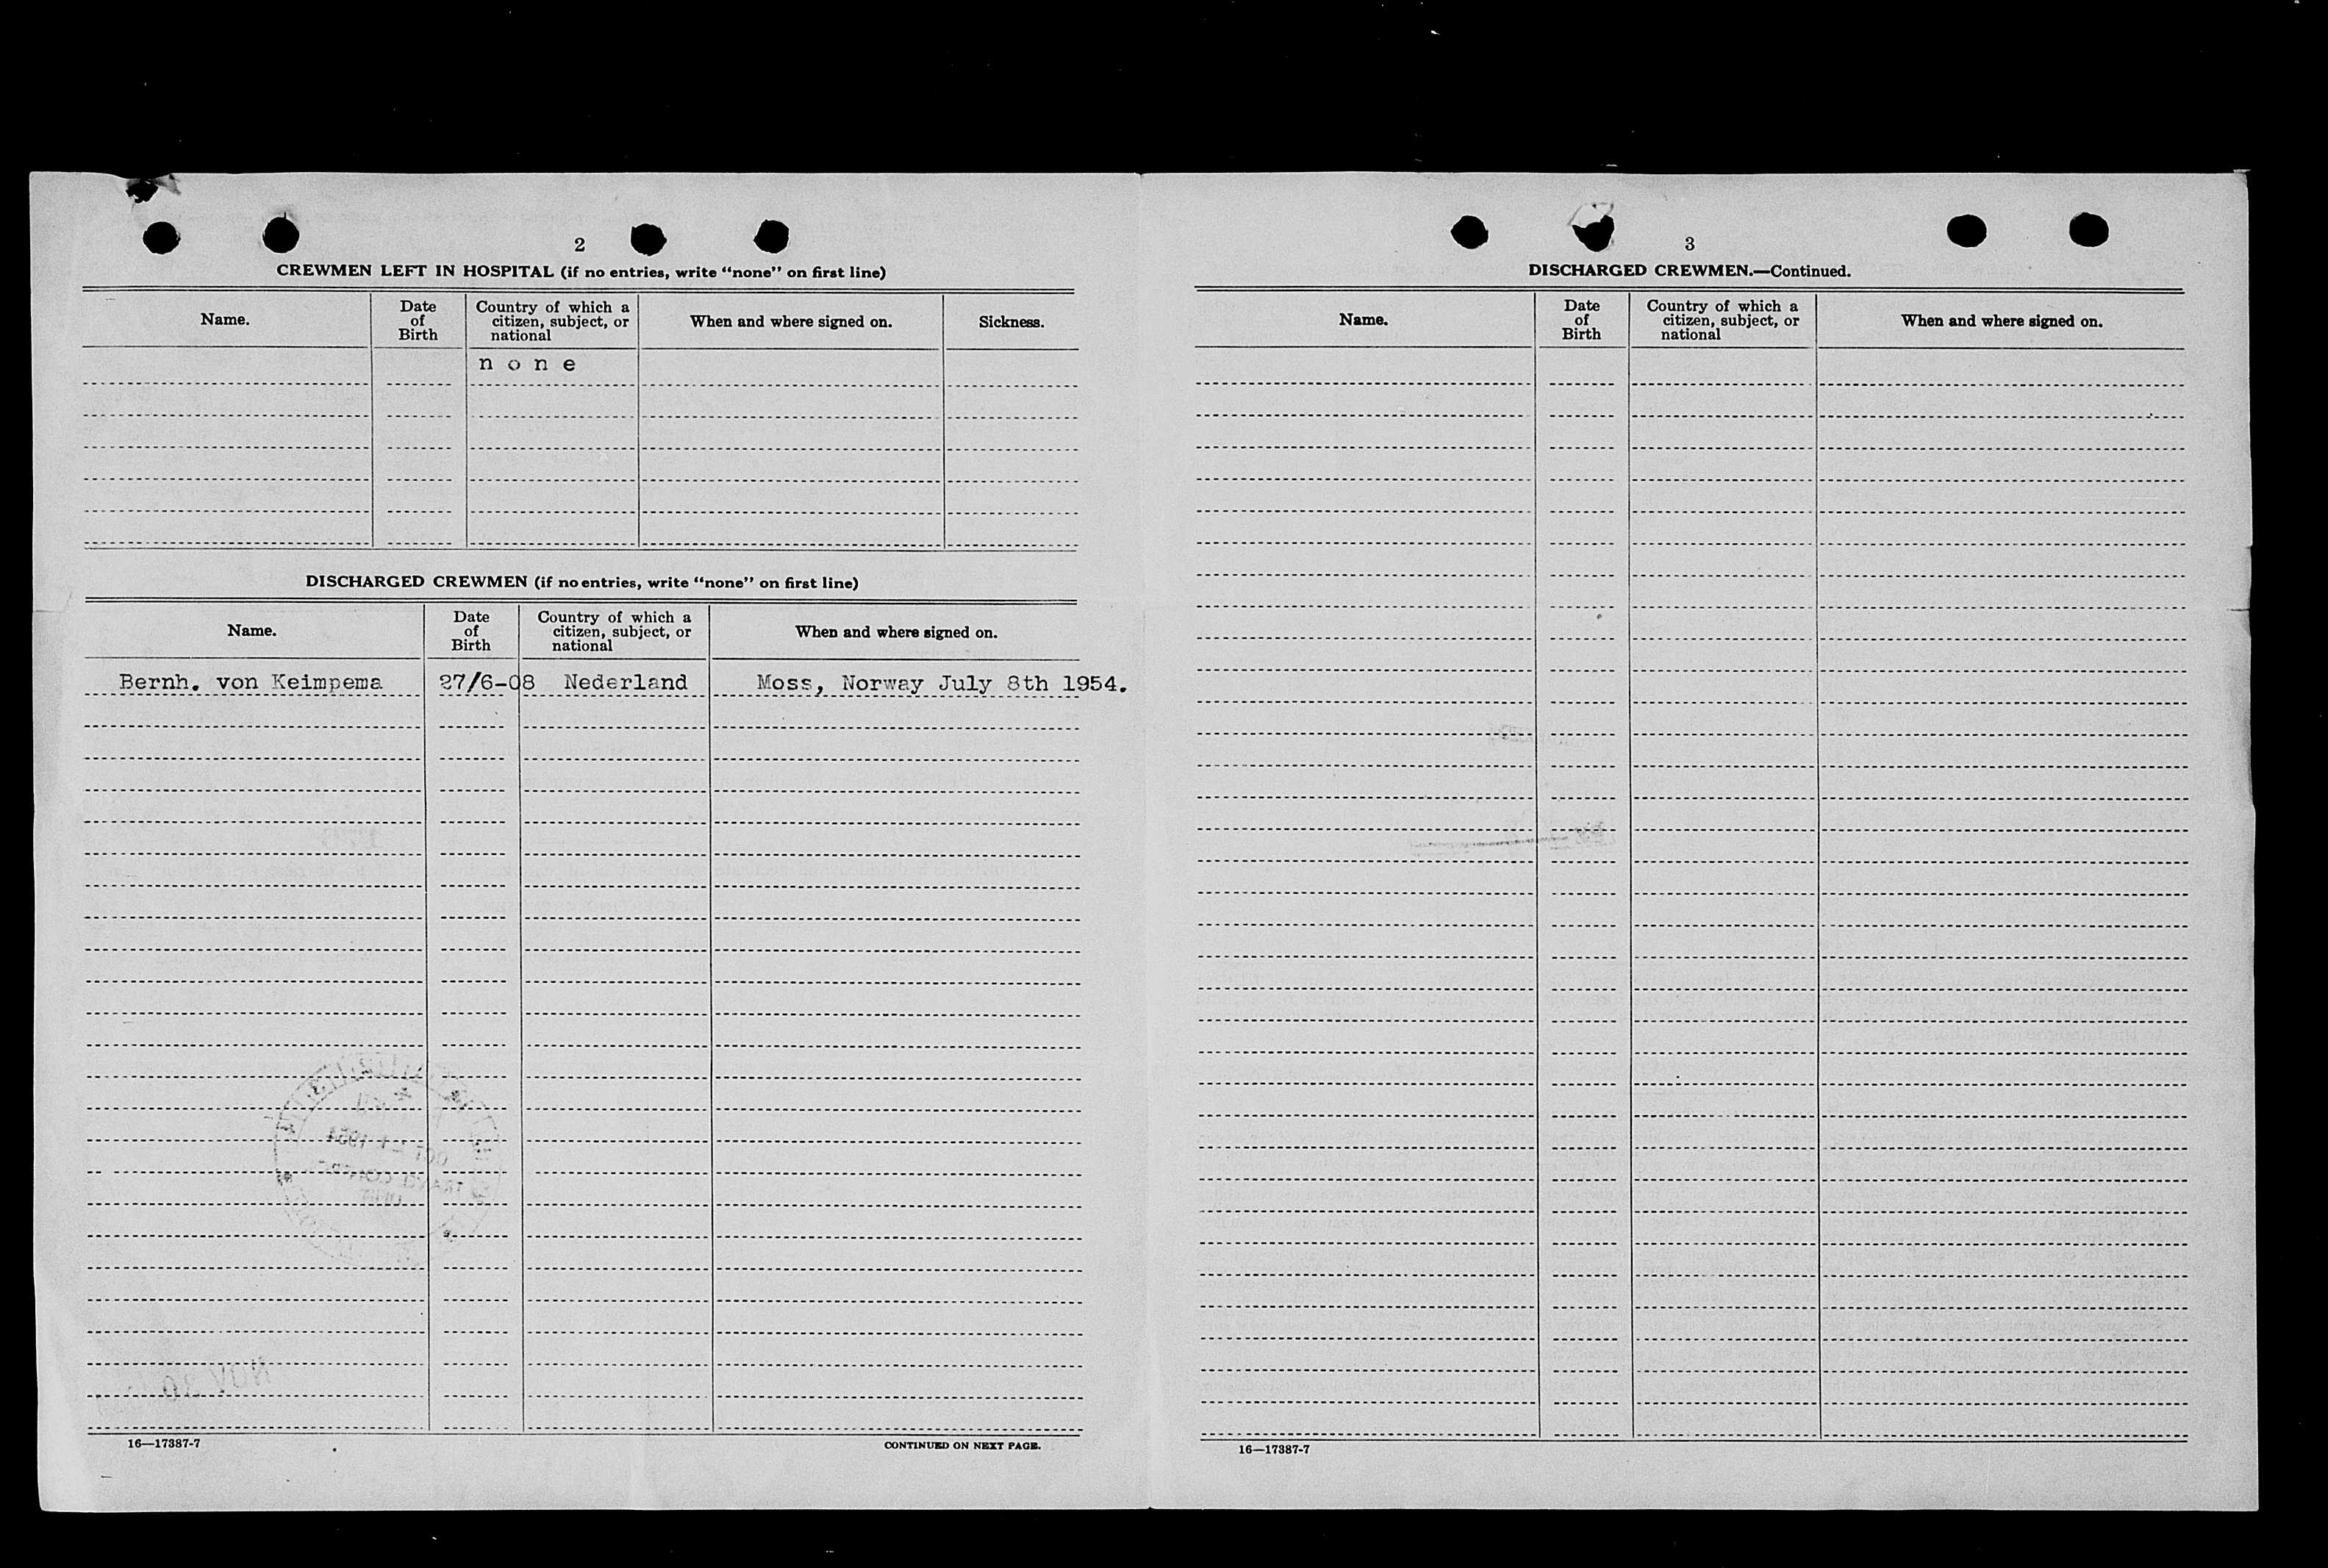 2
CREWMEN LEFT IN HOSPITAL (if no entries, write “none” on first line)
Name.
Date of Birth
Country of which a citizen, subject, or national
When and where signed on.
Sickness.
n o n e
DISCHARGED CREWMEN (if no entries, write “none” on first line)
Name.
Date of Birth
Country of which a citizen, subject, or national
When and where signed on.
Bernh. von Keimpema 27/6-08 Nederland Moss, Norway July 8th 1954.
16—17387-7
CONTINUED ON NEXT PAGE.
3
DISCHARGED CREWMEN.—Continued.
Name.
Date of Birth
Country of which a citizen, subject, or national
When and where signed on.
16—17387-7